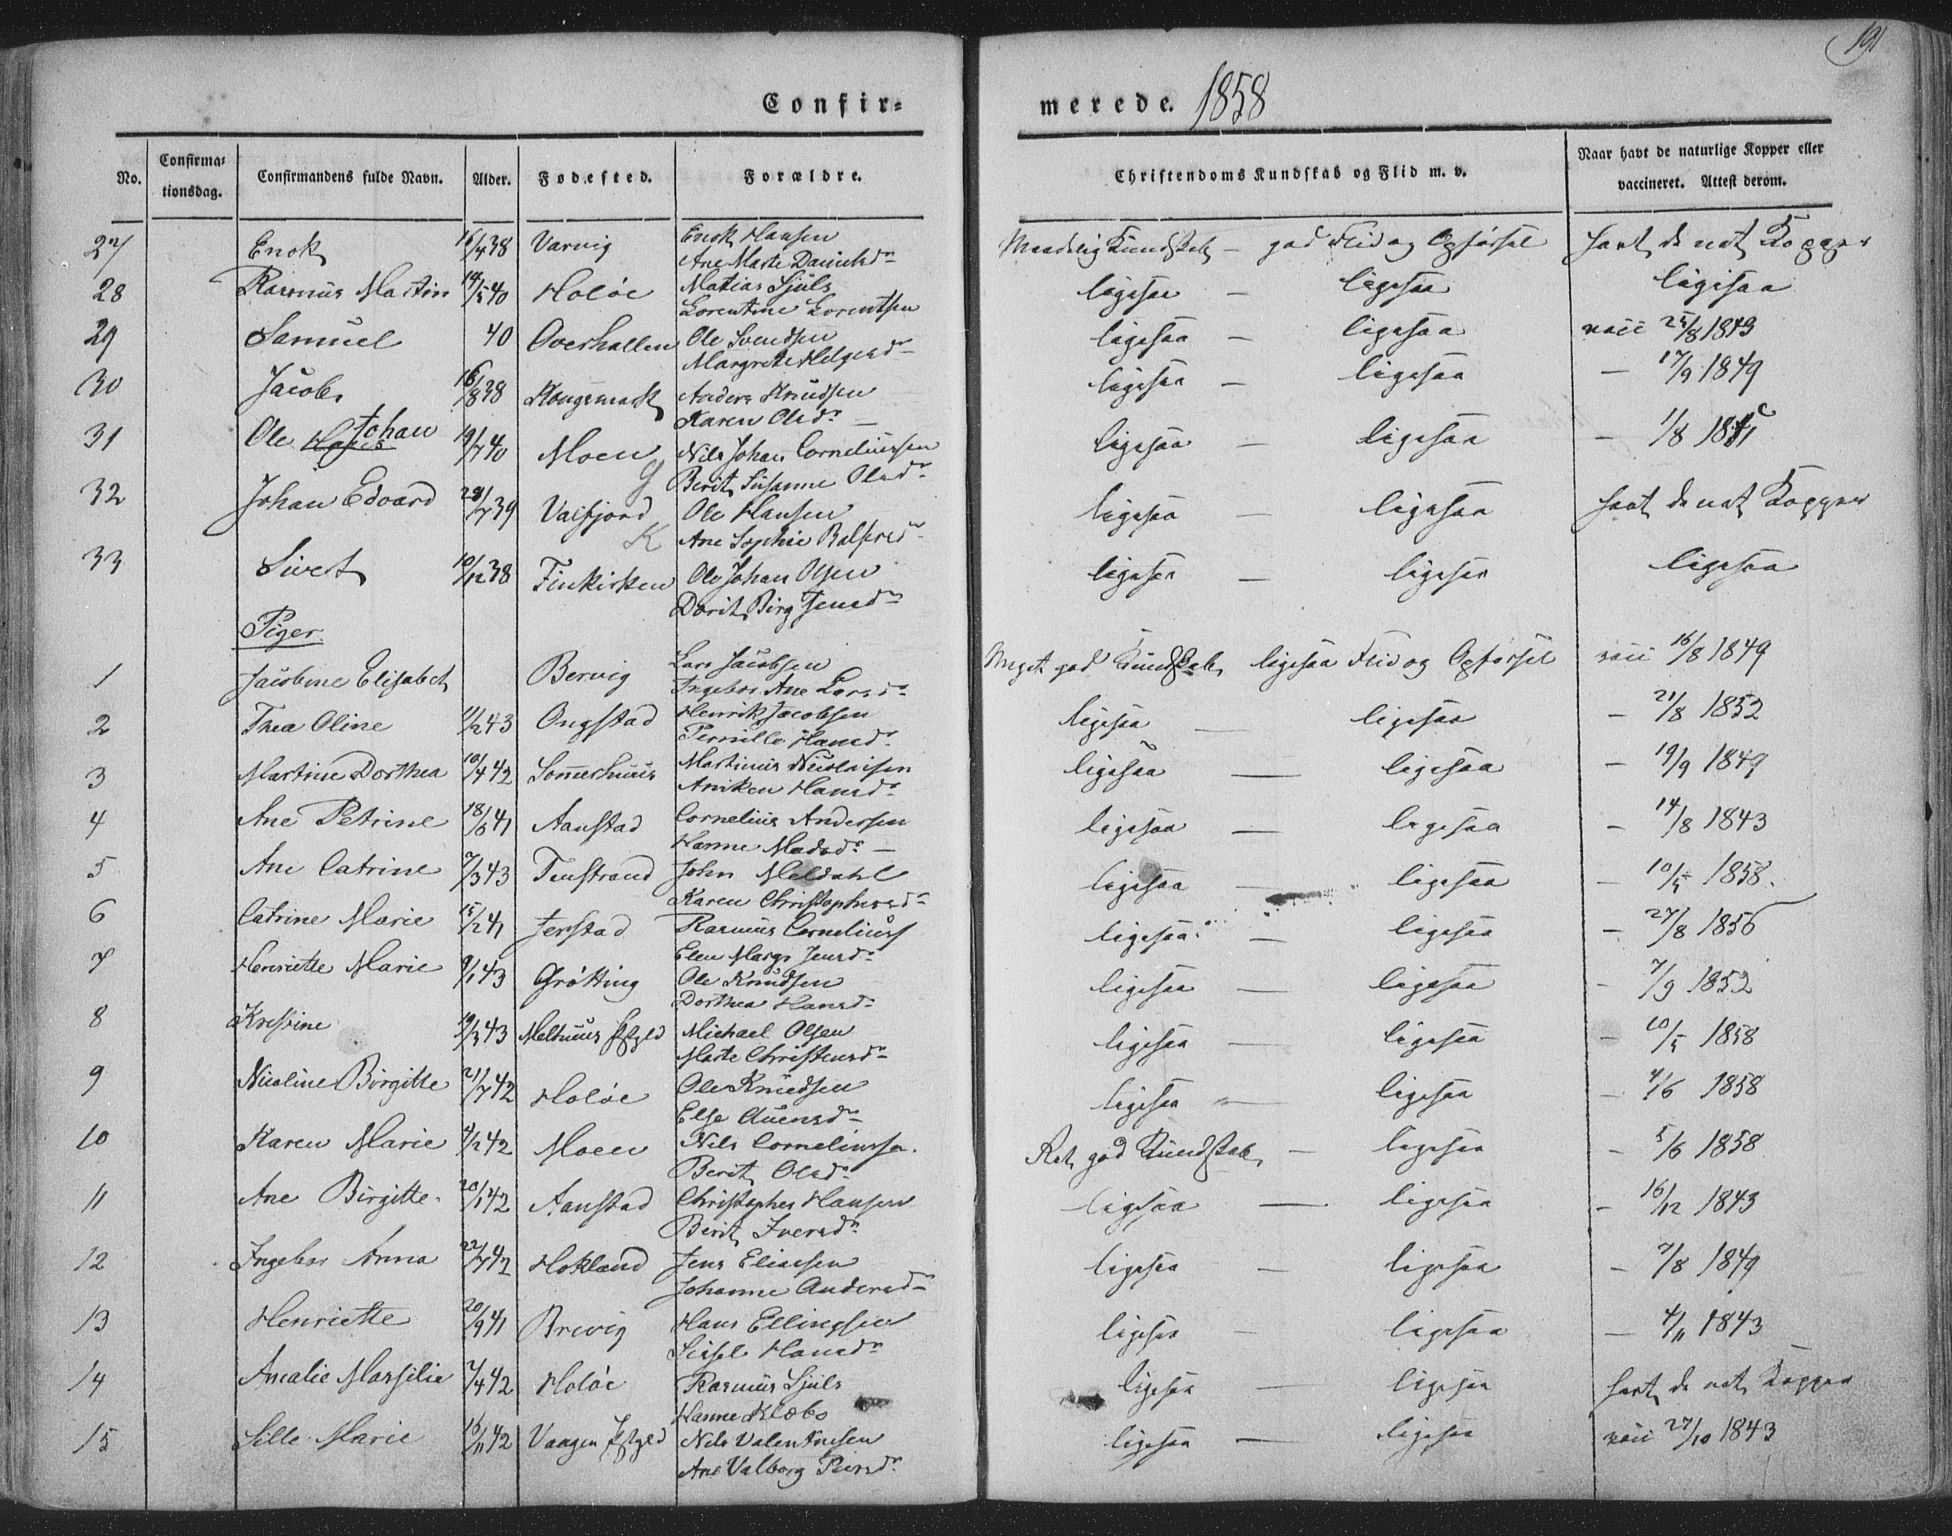 191
Confir=
merede. 1858
No.
Confirma=
tionsdag.
Confirmandens fulde Navn.
Alder.
Fødested.
Forældre.
Christendoms Kundskab og Flid m. v.
Naar havt de naturlige Kopper eller
vaccineret. Attest derom.
27 Enok 16/4 38 Varvig Enok Hansen Maadelig Kundskab — god Flid og Opførsel havt de nat Kopper
Ane Marte Danielsdr
28 Rasmus Martin 14/5 40 Holøe Matias Sjuls ligesaa — ligesaa ligesaa
Lorentine Lorentsen
29 Samuel 40 Overhallen Ole Svendsen ligesaa — ligesaa vacc 25/8 1849
Margrete Helgesdr
30 Jacob 16/8 38 Kougsmark Anders Knudsen ligesaa — ligesaa — 17/9 1849
Karen Olsdr —
31 Ole Hans Johan 19/7 40 Moen Nils Johan Corneliussen ligesaa — ligesaa — 1/8 1841
Berit Susanne Olsdr
32 Johan Edvard 28/7 39 Vaifjord Ole Hansen ligesaa — ligesaa havt de nat Kopper
K Ane Sophie
33 Sivert 10/12 38 Finkirken Ole Johan Olsen ligesaa — ligesaa ligesaa
Dorit Birg Jensdr
Piger.
1 Jacobine Elisabet Bervig Lars Jacobsen Meget god Kundskab ligesaa Flid og Opførsel vacc 16/8 1849
Ingebor Ane Larsdr
2 Thea Oline 11/2 43 Ongstad Henrik Jacobsen ligesaa — ligesaa — 21/8 1852
Pernille Hansdr
3 Martine Dorthea 10/4 42 Sommerhuus Martinus Nicolaisen ligesaa — ligesaa — 19/9 1849
Aniken Hansdr
4 Ane Petrine 18/6 41 Aanstad Cornelius Andersen ligesaa — ligesaa — 14/8 1843
Hanne Madsdr —
5 Ane Catrine 7/3 43 Finstrand John Meldahl ligesaa — ligesaa — 10/5 1858.
Karen Christophersdr
6 Catrine Marie 15/2 41 Jerstad Rasmus Corneliuss ligesaa — ligesaa — 27/8 1856
Elen Marg. Jensdr
7 Henriette Marie 9/1 43 Grøtting Ole Knudsen ligesaa — ligesaa — 7/9 1852
Dorthea Hansdr
8 Kristine 19/3 43 Michael Olsen ligesaa — ligesaa — 10/5 1858
Marte Christensdr
9 Nicoline Birgitte 21/7 42 Holøe Ole Knudsen ligesaa — ligesaa — 4/6 1858
Else
10 Karen Marie 4/2 42 Moen Nils Corneliussen. Ret god Kundskab — ligesaa — 5/6 1858
Berit Olsdr
11 Ane Birgitte 20/1 42 Aanstad Christopher Hansen ligesaa — ligesaa — 16/12 1843
Berit Iversdr
12 Ingebor Anna 22/7 42 Hokland Jens Eliasen ligesaa — ligesaa — 7/8 1849
Johanne Andersdr
13 Henriette 20/9 41 Brevig Hans Ellingsen ligesaa — ligesaa — 4/11 1843
Sissel Hansdr
14 Amalie Marsilie 7/4 42 Holøe Rasmus Sjuls ligesaa — ligesaa havt de nat Kopper
Hanne Klæbo
15 Sille Marie 16/11 42 Vaagen Nils Valentinsen ligesaa — ligesaa vacc 27/10 1843
Ane Valborg Peersdr